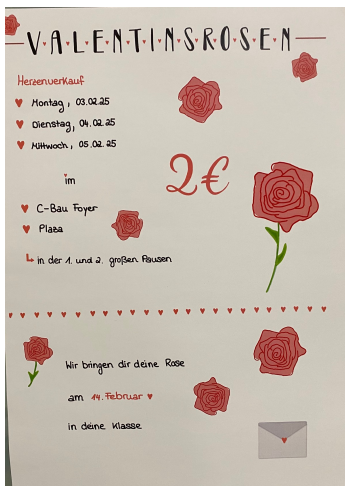 VALENTINSROSEN
Herzenverkauf
Montag, 03.02.25
Dienstag, 04.02.25
Mittwoch, 05.02.25
im
2€
C-Bau Foyer
Plaza
in der 1. und 2. großen Pausen
Wir bringen dir deine Rose
am 14. Februar
in deine Klasse